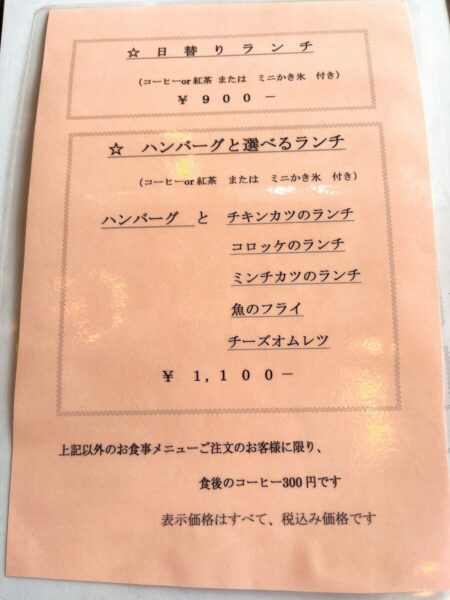 ☆ 日 替 り ラ ン チ
（コーヒーor 紅茶 または ミニかき氷 付き）
￥ ９ ０ ０ －
☆ ハンバーグと選べるランチ
（コーヒーor 紅茶 または ミニかき氷 付き）
ハンバーグ と チキンカツのランチ
コロッケのランチ
ミンチカツのランチ
魚のフライ
チーズオムレツ
￥ １，１００－
上記以外のお食事メニューご注文のお客様に限り、
食後のコーヒー300 円です
表示価格はすべて、税込み価格です